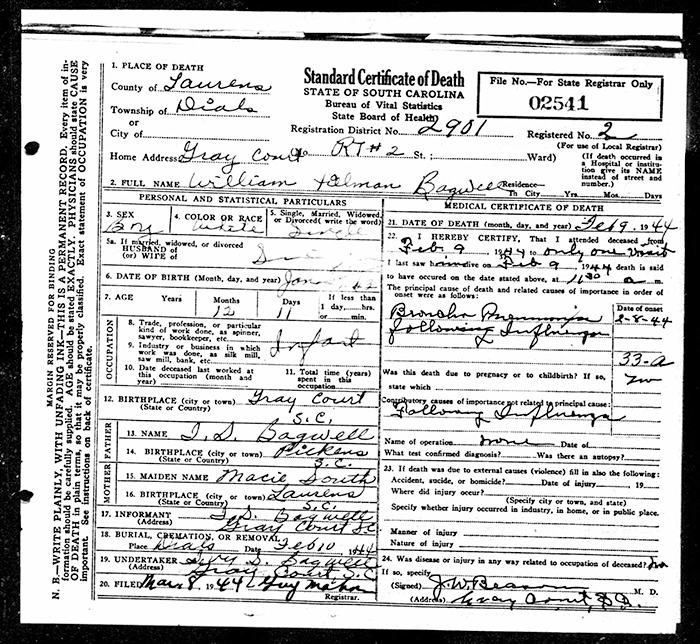 MARGIN RESERVED FOR BINDING
N. B.—WRITE PLAINLY, WITH UNFADING INK—THIS IS A PERMANENT RECORD. Every item of information should be carefully supplied. AGE should be stated EXACTLY. PHYSICIANS should state CAUSE OF DEATH in plain terms, so that it may be properly classified. Exact statement of OCCUPATION is very important. See instructions on back of certificate.
Standard Certificate of Death
STATE OF SOUTH CAROLINA
Bureau of Vital Statistics
State Board of Health
File No.—For State Registrar Only
02541
1. PLACE OF DEATH
County of Laurens
Township of Dials
or
City of
Registration District No. 2901
Registered No. 2
(For use of Local Registrar)
Home Address Gray Court RT #2 St.; Ward)
(If death occurred in a Hospital or institution give its NAME instead of street and number.)
2. FULL NAME William Bagwell
Residence—In City Yrs. Mos. Days
PERSONAL AND STATISTICAL PARTICULARS
3. SEX
Boy
4. COLOR OR RACE
White
5. Single, Married, Widowed, or Divorced (write the word)
Single
5a. If married, widowed, or divorced
HUSBAND of
(or) WIFE of
6. DATE OF BIRTH (Month, day, and year) Jan
7. AGE Years Months Days
12 11
If less than 1 day, hrs. or min.
OCCUPATION
8. Trade, profession, or particular kind of work done, as spinner, sawyer, bookkeeper, etc.
9. Industry or business in which work was done, as silk mill, saw mill, bank, etc.
Infant
10. Date deceased last worked at this occupation (month and year)
11. Total time (years) spent in this occupation
12. BIRTHPLACE (city or town) Gray Court
(State or Country) S.C.
FATHER
13. NAME T. S. Bagwell
14. BIRTHPLACE (city or town) Pickens
(State or Country) S.C.
MOTHER
15. MAIDEN NAME Macie South
16. BIRTHPLACE (city or town) Laurens
(State or Country) S.C.
17. INFORMANT T. S. Bagwell
(Address) Gray Court SC
18. BURIAL, CREMATION, OR REMOVAL
Place Dials Date Feb 10 1944
19. UNDERTAKER S. Bagwell
(Address) Gray Court, S.C.
20. FILED Mar. 8, 1944 Guy
Registrar.
MEDICAL CERTIFICATE OF DEATH
21. DATE OF DEATH (month, day, and year) Feb 9 1944
22. I HEREBY CERTIFY, That I attended deceased from
Feb 9, 1944 to only one visit
I last saw him alive on Feb 9, 1944 death is said
to have occured on the date stated above, at 11 30 a m.
The principal cause of death and related causes of importance in order of onset were as follows:
Date of onset
Broncho Pneumonia
2-8-44
following Influenza
33-a
Was this death due to pregnancy or to childbirth? If so, no
state which
Contributory causes of importance not related to principal cause:
Following Influenza
Name of operation none Date of
What test confirmed diagnosis? Was there an autopsy?
23. If death was due to external causes (violence) fill in also the following:
Accident, suicide, or homicide? Date of injury 19
Where did injury occur?
(Specify city or town, and state)
Specify whether injury occurred in industry, in home, or in public place.
Manner of injury
Nature of injury
24. Was disease or injury in any way related to occupation of deceased? no
If so, specify
(Signed) J. W. Beason M. D.
(Address) Gray Court, S.C.